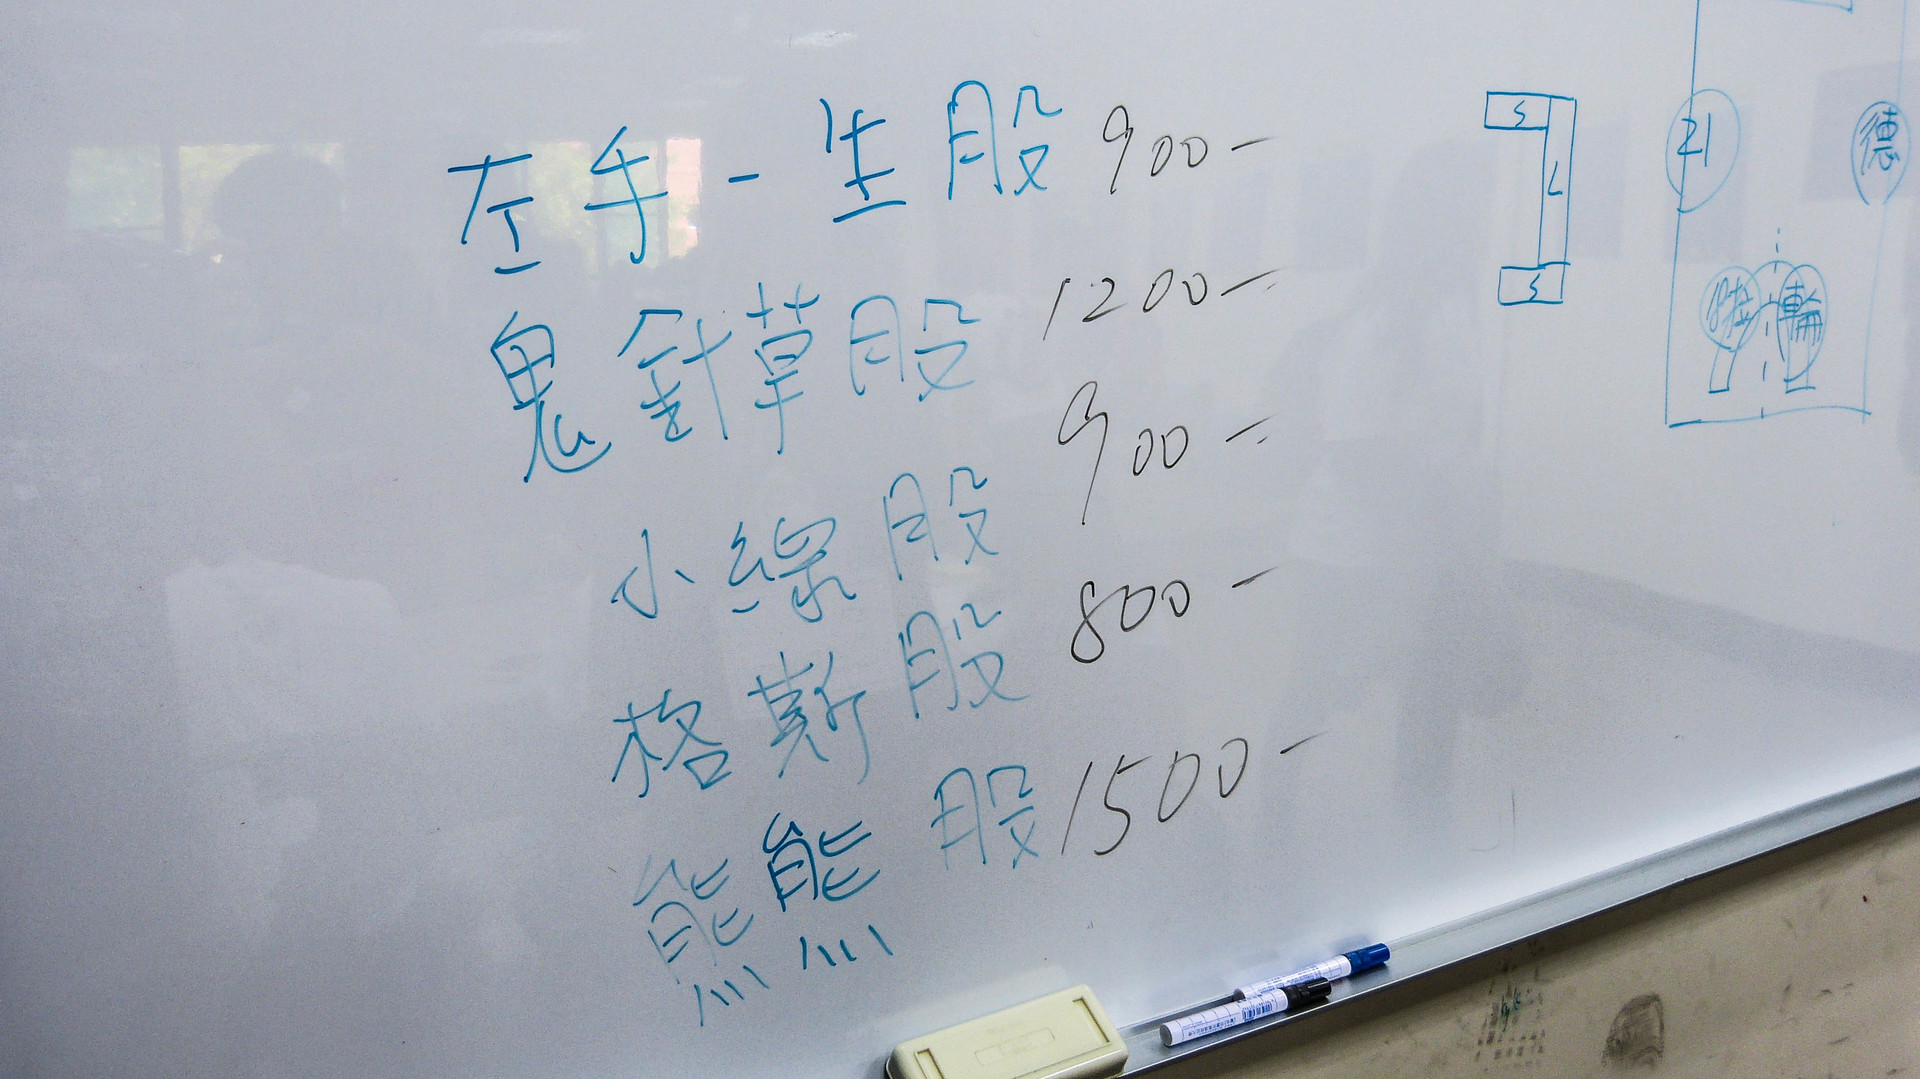 左手-生股 900-
鬼針草股 1200-
小綠股 900-
格斯股 800-
熊熊股 1500-
S
L
S
21
德
輪